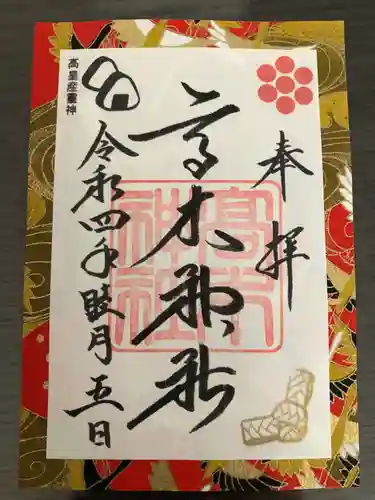 奉拝
高木神社
高木神社
令和四年睦月五日
高皇産霊神